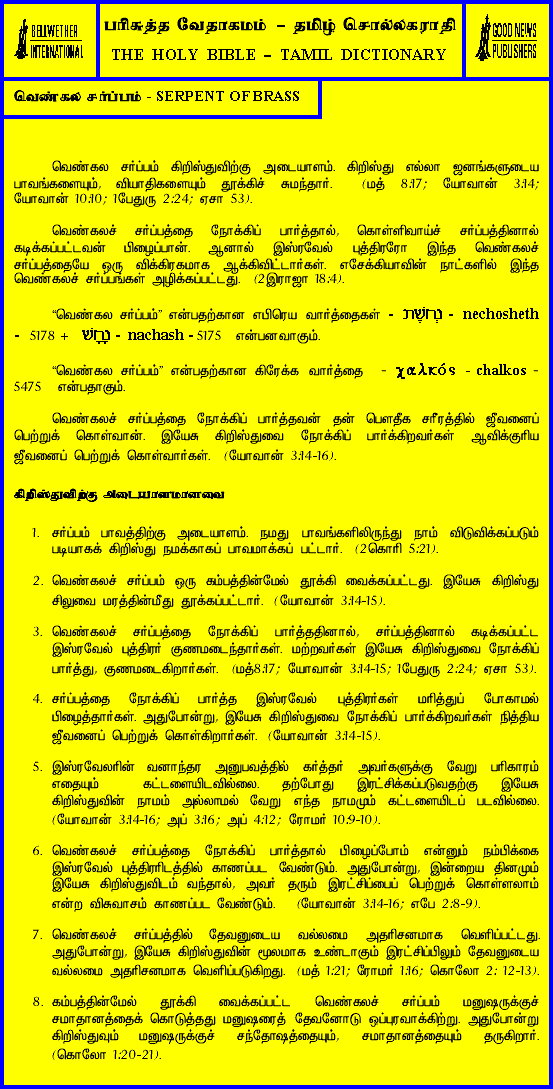 BELLWETHER
INTERNATIONAL
பரிசுத்த வேதாகமம் – தமிழ் சொல்லகராதி
THE HOLY BIBLE – TAMIL DICTIONARY
GOOD NEWS
PUBLISHERS
வெண்கல சர்ப்பம் - SERPENT OF BRASS
வெண்கல சர்ப்பம் கிறிஸ்துவிற்கு அடையாளம். கிறிஸ்து எல்லா ஜனங்களுடைய
பாவங்களையும், வியாதிகளையும் தூக்கிச் சுமந்தார். (மத் 8:17; யோவான் 3:14;
யோவான் 10:10; 1பேதுரு 2:24; ஏசா 53).
வெண்கலச் சர்ப்பத்தை நோக்கிப் பார்த்தால், கொள்ளிவாய்ச் சர்ப்பத்தினால்
கடிக்கப்பட்டவன் பிழைப்பான். ஆனால் இஸ்ரவேல் புத்திரரோ இந்த வெண்கலச்
சர்ப்பத்தையே ஒரு விக்கிரகமாக ஆக்கிவிட்டார்கள். எசேக்கியாவின் நாட்களில் இந்த
வெண்கலச் சர்ப்பங்கள் அழிக்கப்பட்டது. (2இராஜா 18:4).
“வெண்கல சர்ப்பம்” என்பதற்கான எபிரெய வார்த்தைகள் - נְחֹשֶׁת - nechosheth
- 5178 + נָחָשׁ - nachash - 5175 என்பனவாகும்.
“வெண்கல சர்ப்பம்” என்பதற்கான கிரேக்க வார்த்தை - χαλκός - chalkos -
5475 என்பதாகும்.
வெண்கலச் சர்ப்பத்தை நோக்கிப் பார்த்தவன் தன் பௌதீக சரீரத்தில் ஜீவனைப்
பெற்றுக் கொள்வான். இயேசு கிறிஸ்துவை நோக்கிப் பார்க்கிறவர்கள் ஆவிக்குரிய
ஜீவனைப் பெற்றுக் கொள்வார்கள். (யோவான் 3:14-16).
கிறிஸ்துவிற்கு அடையாளமானவை
1. சர்ப்பம் பாவத்திற்கு அடையாளம். நமது பாவங்களிலிருந்து நாம் விடுவிக்கப்படும்
படியாகக் கிறிஸ்து நமக்காகப் பாவமாக்கப் பட்டார். (2கொரி 5:21).
2. வெண்கலச் சர்ப்பம் ஒரு கம்பத்தின்மேல் தூக்கி வைக்கப்பட்டது. இயேசு கிறிஸ்து
சிலுவை மரத்தின்மீது தூக்கப்பட்டார். (யோவான் 3:14-15).
3. வெண்கலச் சர்ப்பத்தை நோக்கிப் பார்த்ததினால், சர்ப்பத்தினால் கடிக்கப்பட்ட
இஸ்ரவேல் புத்திரர் குணமடைந்தார்கள். மற்றவர்கள் இயேசு கிறிஸ்துவை நோக்கிப்
பார்த்து, குணமடைகிறார்கள். (மத்8:17; யோவான் 3:14-15; 1பேதுரு 2:24; ஏசா 53).
4. சர்ப்பத்தை நோக்கிப் பார்த்த இஸ்ரவேல் புத்திரர்கள் மரித்துப் போகாமல்
பிழைத்தார்கள். அதுபோன்று, இயேசு கிறிஸ்துவை நோக்கிப் பார்க்கிறவர்கள் நித்திய
ஜீவனைப் பெற்றுக் கொள்கிறார்கள். (யோவான் 3:14-15).
5. இஸ்ரவேலரின் வனாந்தர அனுபவத்தில் கர்த்தர் அவர்களுக்கு வேறு பரிகாரம்
எதையும் கட்டளையிடவில்லை. தற்போது இரட்சிக்கப்படுவதற்கு இயேசு
கிறிஸ்துவின் நாமம் அல்லாமல் வேறு எந்த நாமமும் கட்டளையிடப் படவில்லை.
(யோவான் 3:14-16; அப் 3:16; அப் 4:12; ரோமர் 10:9-10).
6. வெண்கலச் சர்ப்பத்தை நோக்கிப் பார்த்தால் பிழைப்போம் என்னும் நம்பிக்கை
இஸ்ரவேல் புத்திரரிடத்தில் காணப்பட வேண்டும். அதுபோன்று, இன்றைய தினமும்
இயேசு கிறிஸ்துவிடம் வந்தால், அவர் தரும் இரட்சிப்பைப் பெற்றுக் கொள்ளலாம்
என்ற விசுவாசம் காணப்பட வேண்டும். (யோவான் 3:14-16; எபே 2:8-9).
7. வெண்கலச் சர்ப்பத்தில் தேவனுடைய வல்லமை அதரிசனமாக வெளிப்பட்டது.
அதுபோன்று, இயேசு கிறிஸ்துவின் மூலமாக உண்டாகும் இரட்சிப்பிலும் தேவனுடைய
வல்லமை அதரிசனமாக வெளிப்படுகிறது. (மத் 1:21; ரோமர் 1:16; கொலோ 2: 12-13).
8. கம்பத்தின்மேல் தூக்கி வைக்கப்பட்ட வெண்கலச் சர்ப்பம் மனுஷருக்குச்
சமாதானத்தைக் கொடுத்தது மனுஷரைத் தேவனோடு ஒப்புரவாக்கிற்று. அதுபோன்று
கிறிஸ்துவும் மனுஷருக்குச் சந்தோஷத்தையும், சமாதானத்தையும் தருகிறார்.
(கொலோ 1:20-21).